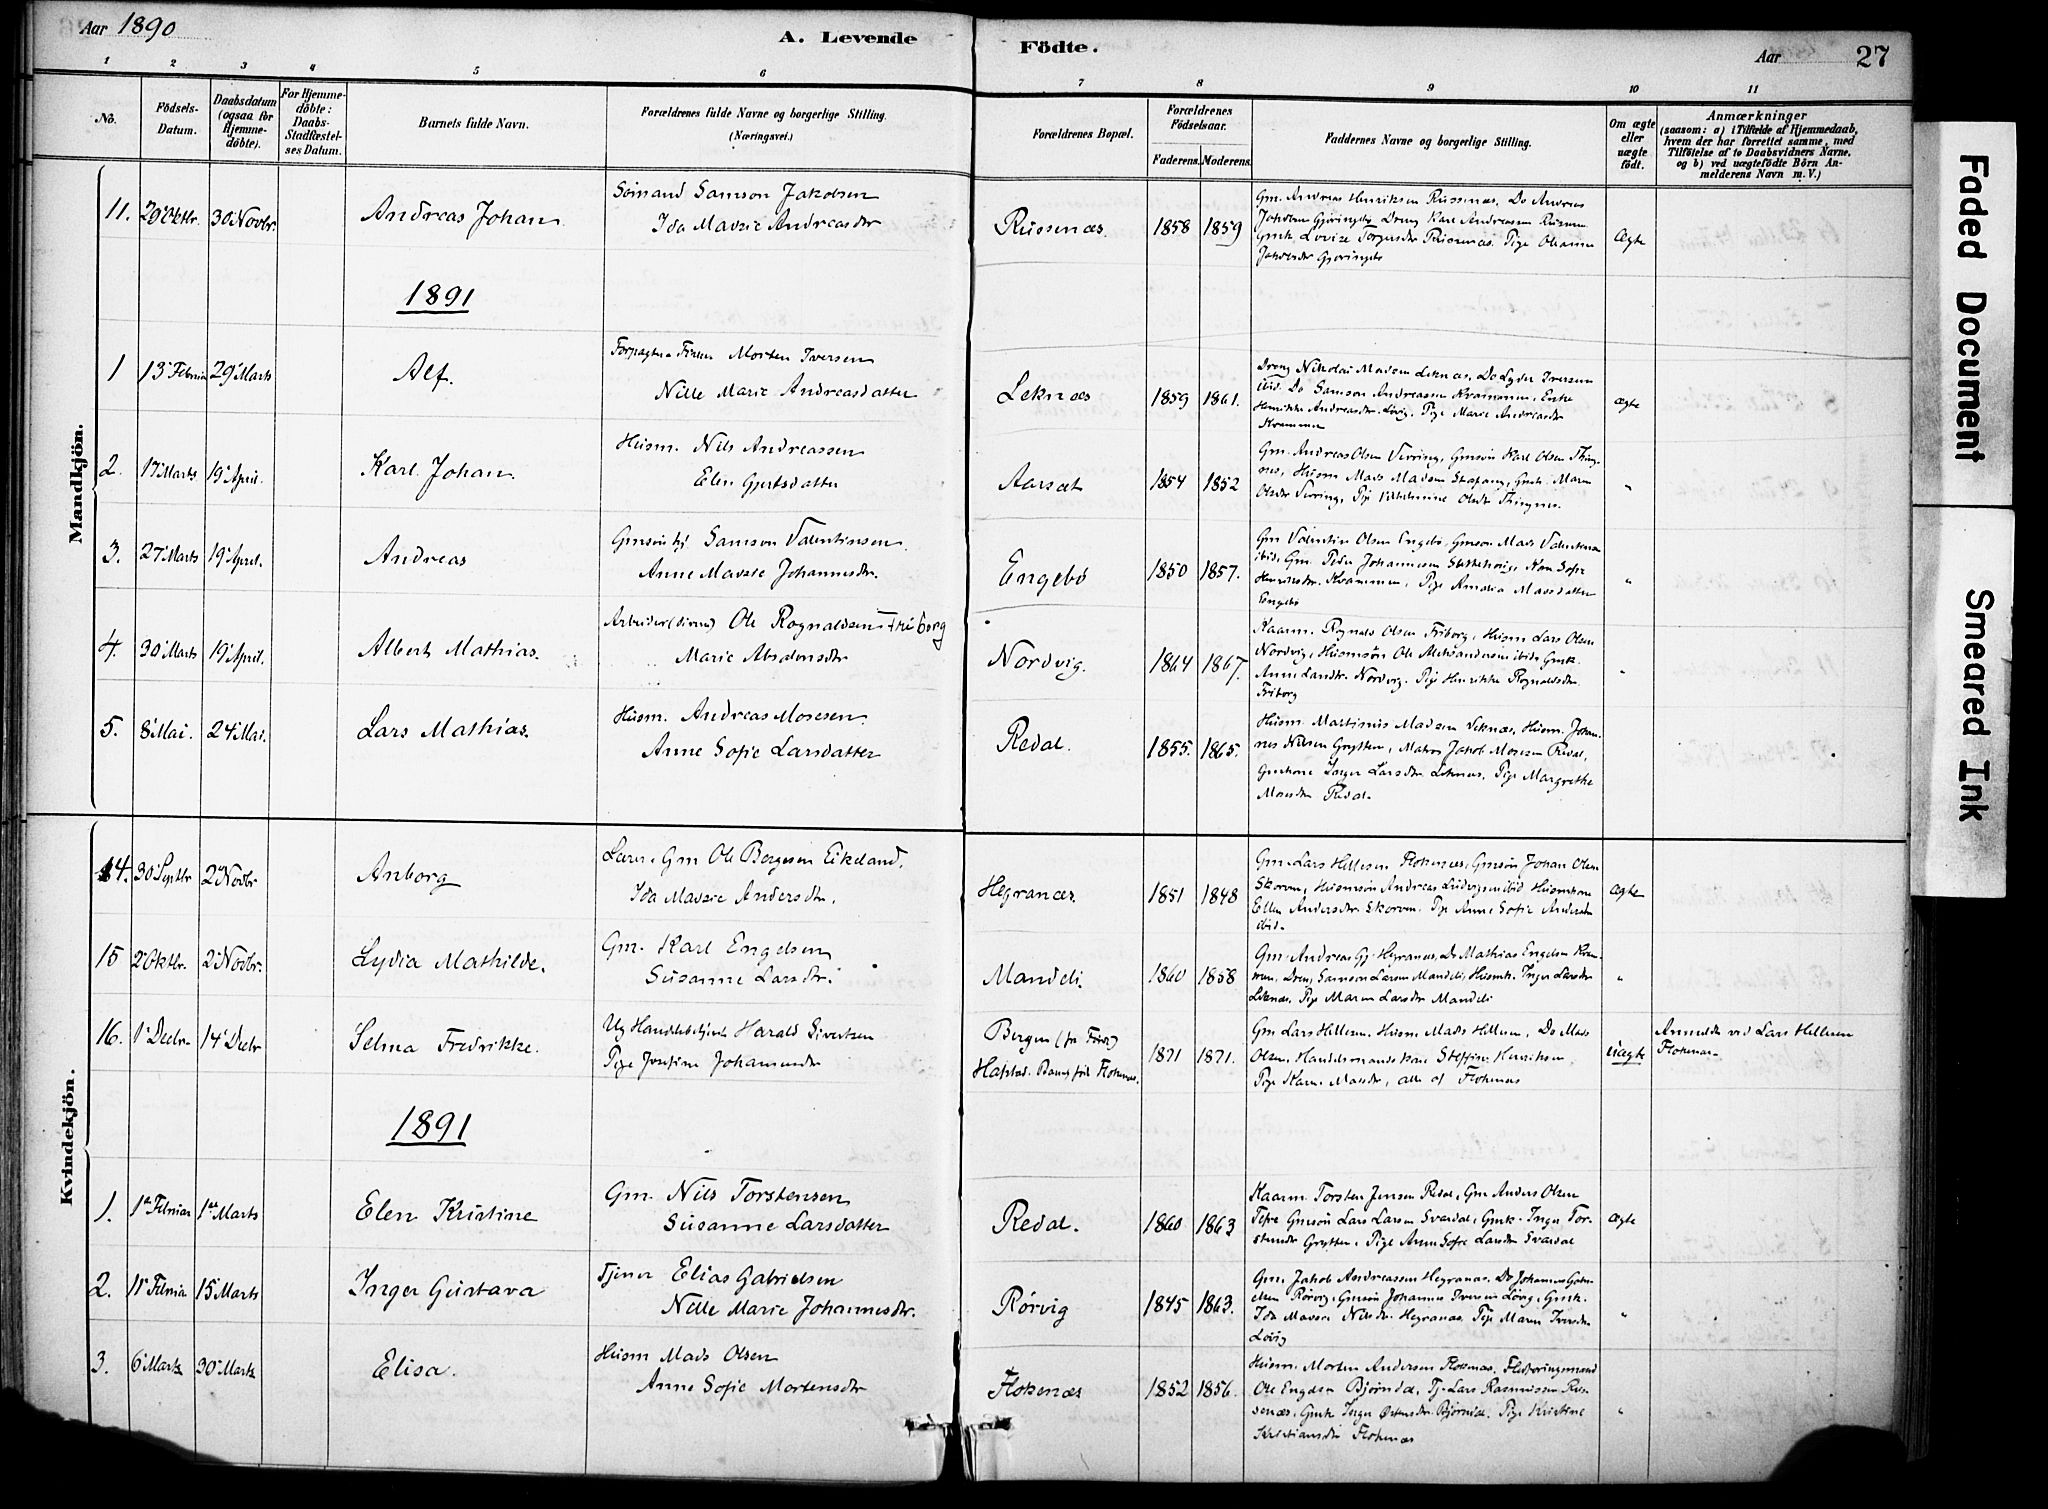 Aar 1890
A. Levende Födte.
Aar 27
1 2 3 4 5 6 7 8 9 10 11
No.
Födsels-Datum.
Daabsdatum (ogsaa for Hjemme-döbte).
For Hjemme-döbte: Daabs-Stadfæstel-ses Datum.
Barnets fulde Navn.
Forældrenes fulde Navne og borgerlige Stilling.
(Næringsvei.)
Forældrenes Bopæl.
Forældrenes Födselsaar.
Faderens. Moderens.
Faddernes Navne og borgerlige Stilling.
Om ægte eller uægte födt.
Anmærkninger
(saasom: a) i Tilfælde af Hjemmedaab,
hvem der har forrettet samme, med
Tilföielse af to Daabsvidners Navne,
og b) ved uægtefödte Börn An-
melderens Navn m. V.)
Mandkjön.
11. 29 Oktbr. 30 Novbr. Andreas Johan
Samson Jakobsen
Ida Andreasdtr
Russenæs. 1858 1859
Gm. Andreas Henriksen Russenæs, Do Andreas
Ægte
1891
1 13 Februar 29 Marts Alf.
Morten Iversen
Nille Marie Andreasdatter
Leknæs 1859 1861.
Dreng Nikolai Madsen Leknæs, Do Lyder Iversen
ibid. Do Samson Andreassen Krammen, Enke
Henrikke Andreasdtr. Lövig, Pige Marie Andreasdtr
Krammen
ægte
2. 17 Marts 19 April. Karl Johan.
Husm. Nils Andreassen
Elen Gjertsdatter
Aarsæt 1854 1852
Gm. Andreas Olsen Gmsön Karl Olsen
Husm Mads Madsen
Pige Vilhelmine Olsdtr
"
3. 27 Marts 19 April. Andreas
Samson Valentinsen.
Anne Johannesdtr.
Engebö 1850 1857.
Gm Valentin Olsen Engebö, Gmsön Mads Valentinsen
ibid, Gm. Peder Johannesen
Henriksdtr. Krammen, Pige Amalia Madsdatter
Engebö
"
4. 30 Marts 19 April. Albert Mathias.
Arbeider Ole Rognaldsen Friborg
Marie Absalonsdtr
Nordvig. 1864 1867.
Kaarm. Rognald Olsen Friborg, Husm Lars Olsen
Nordvig, Husmsön Ole Aleksandersen ibid, Gmk.
Anne Nordvig. Pige Henrikke Rognaldsdtr.
Friborg
"
5. 8 Mai. 24 Mai. Lars Mathias.
Husm. Andreas Mosesen.
Anne Sofie Larsdatter
Redal. 1855. 1865.
Husm. Martinus Madsen Leknæs, Husm. Johan-
nes Nilsen Grytten, Jakob Mosesen Redal,
Inger Larsdtr. Leknæs, Pige Margrethe
Mosesdtr Redal.
Kvindekjön.
14. 30 Septbr 2 Novbr Anborg
Gm Ole Eikeland.
Ida Andersdtr.
Hegranæs. 1851 1848
Gm. Lars Hillesen Flokenæs, Gmsön Johan Olsen
Skorven, Husmsön Andreas Ludvigsen ibid Husmkone
Ellen Andersdtr Skorven. Pige Anne Sofie Andersdtr
ibid.
Ægte
15 2 Oktbr. 2 Novbr. Lydia Mathilde.
Gm. Karl Engelsen
Susanne Larsdtr.
Mandeli. 1860 1858
Gm. Andreas Hegranæs, Do Mathias Engelsen Kram-
men, Dreng Samson Larsen Mandeli, Husmk. Inger Larsdtr
Leknæs. Pige Maren Larsdtr Mandeli
"
16. 1 Decbr. 14 Decbr Selma Fredrikke.
Ug Handelsbetjent Harald Sivertsen
Pige Josefine
Bergen (fra Förde)
Flokenæs.
1871 1871.
Gm Lars Hillesen. Husm Mads Hillesen, Do Mads
Olsen, Steffen Henriksen,
Pige Karen Madsdtr, alle af Flokenæs
uægte
Anmeldt ved Lars Hillesen
Flokenæs.
1891
1. 1ste Februar 1ste Marts Elen Kristine
Gm. Nils Torstensen
Susanne Larsdatter
Redal. 1860 1863
Kaarm. Torsten Jensen Redal, Gm Anders Olsen
Gmsön Lars Larsen Svardal, Gmk. Inger Tor-
stensdtr Grytten, Pige Anne Sofie Larsdtr Svardal
ægte
2. 11 Februar 15 Marts Inger Gustava
Tjener Elias Gabrielsen
Nille Marie Johannesdtr.
Rörvig 1845 1863.
Gm. Jakob Andreassen Hegranæs. Do Johannes Gabri-
elsen Rörvig, Gmsön Johannes Iversen Lövig, Gmk.
Ida Nilsdtr. Hegranæs. Pige Maren Iversdtr
Lövig
"
3. 6 Marts 30 Marts Elisa.
Husm Mads Olsen
Anne Sofie Mortensdtr
Flokenæs 1852 1856.
Husm. Morten Andersen Flokenæs,
Ole Engelsen Lars Rasmussen Rus-
senæs, Gmk Inger Pige Kristine
Kristiansdtr Flokenæs
"
Faded Document
Smeared Ink